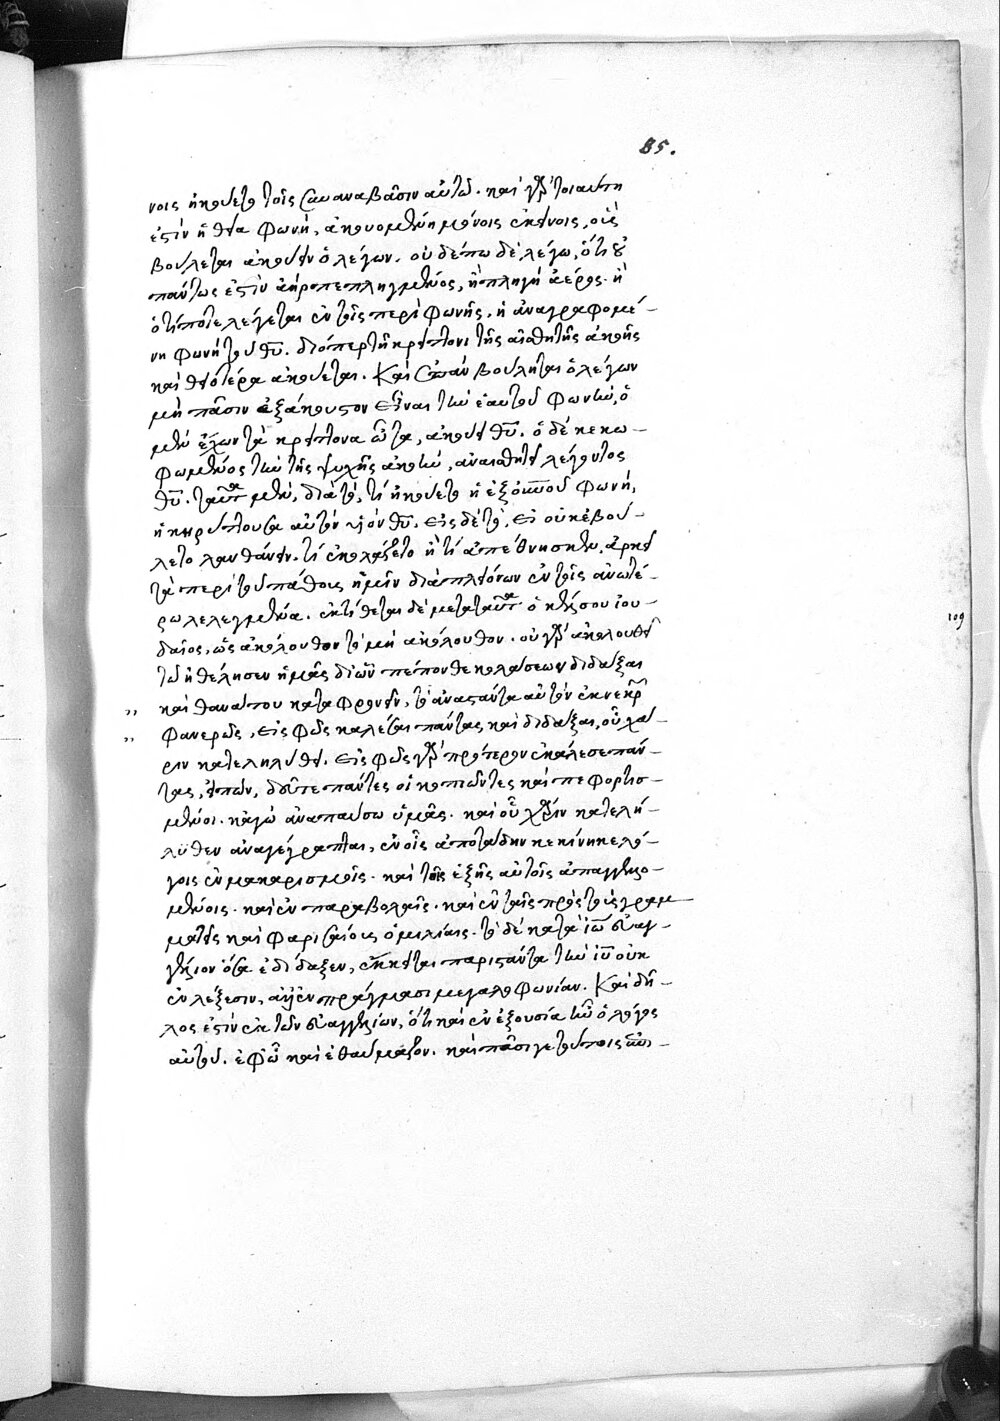 85.
νοις ἠκούετο τοῖς συναναβᾶσιν αὐτῷ. καὶ γὰρ τοιαύτη
ἐστὶν ἡ θεία φωνή, ἀκουομένη μόνοις ἐκείνοις, οἷς
βούλεται ἀκούειν ὁ λέγων. οὐδέπω δὲ λέγω, ὅτι οὐ
πάντως ἐστὶν ἀὴρ πεπληγμένος, ἢ πληγὴ ἀέρος. ἢ
ὅ τι ποτὲ λέγεται ἐν τοῖς περὶ φωνῆς, ἡ ἀναγραφομέ-
νη φωνὴ τοῦ θυ. διόπερ τῇ κρείττονι τῆς αἰσθητῆς ἀκοῆς
καὶ θειοτέρα ἀκούεται. Καὶ ἐπὰν βούληται ὁ λέγων
μὴ πᾶσιν ἐξάκουστον εἶναι τὴν ἑαυτοῦ φωνὴν, ὁ
μὲν ἔχων τὰ κρείττονα ὦτα, ἀκούει θυ. ὁ δὲ κεκω-
φωμένος τὴν τῆς ψυχῆς ἀκοὴν, ἀναισθητεῖ λέγοντος
θυ. ταῦτα μὲν, διὰ τὸ, τί ἠκούετο ἡ ἐξ οὐνοῦ φωνὴ,
ἡ κηρύττουσα αὐτὸν υἱὸν θυ. εἰς δὲ τὸ, εἰ οὐκ ἐβού-
λετο λανθάνειν. τί ἐκολάζετο ἢ τί ἀπέθνησκεν, ἀρκεῖ
τὰ περὶ τοῦ πάθους ἡμῖν διὰ πλειόνων ἐν τοῖς ἀνωτέ-
ρω λελεγμένα. ἐκτίθεται δὲ μετὰ ταῦτα ὁ κέλσου ἰου-
δαῖος, ὡς ἀκόλουθον τὸ μὴ ἀκόλουθον. οὐ γὰρ ἀκολουθεῖ
τῷ ἠθέλησεν ἡμᾶς δι' ὧν πέπονθε κολάσεων διδάξαι
καὶ θανάτου καταφρονεῖν, τὸ ἀναστάντα αὐτὸν ἐκ νεκρ
φανερῶς, εἰς φῶς καλέσαι πάντας καὶ διδάξαι, οὗ χά-
ριν κατεληλύθει. εἰς φῶς γὰρ πρότερον ἐκάλεσε πάν-
τας, εἰπὼν, δεῦτε πάντες οἱ κοπιῶντες καὶ πεφορτισ-
μένοι. κἀγὼ ἀναπαύσω ὑμᾶς. καὶ οὗ χάριν κατελή-
λυθεν ἀναγέγραπται, ἐν οἷς ἀπότάδην κεκίνηκε λό-
γοις ἐν μακαρισμοῖς. καὶ τοῖς ἑξῆς αὐτοῖς ἀπαγγελλο-
μένοις. καὶ ἐν παραβολαῖς. καὶ ἐν ταῖς πρὸς τοὺς γραμ-
ματεῖς καὶ φαρισαίους ὁμιλίαις. τὸ δὲ κατὰ ἰω εὐαγ-
γέλιον ὅσα ἐδίδαξεν, ἔκκειται παριστάντα τὴν ιυ οὐκ
ἐν λέξεσιν, ἀλλ' ἐν πράγμασι μεγαλοφωνίαν. Καὶ δῆ-
λος ἐστὶν ἐκ τῶν εὐαγγελίων, ὅτι καὶ ἐν ἐξουσία ἦν ὁ λόγος
αὐτοῦ. ἐφ' ᾧ καὶ ἐθαύμαζον. καὶ πᾶσι γε τούτοις ἐπι-
109